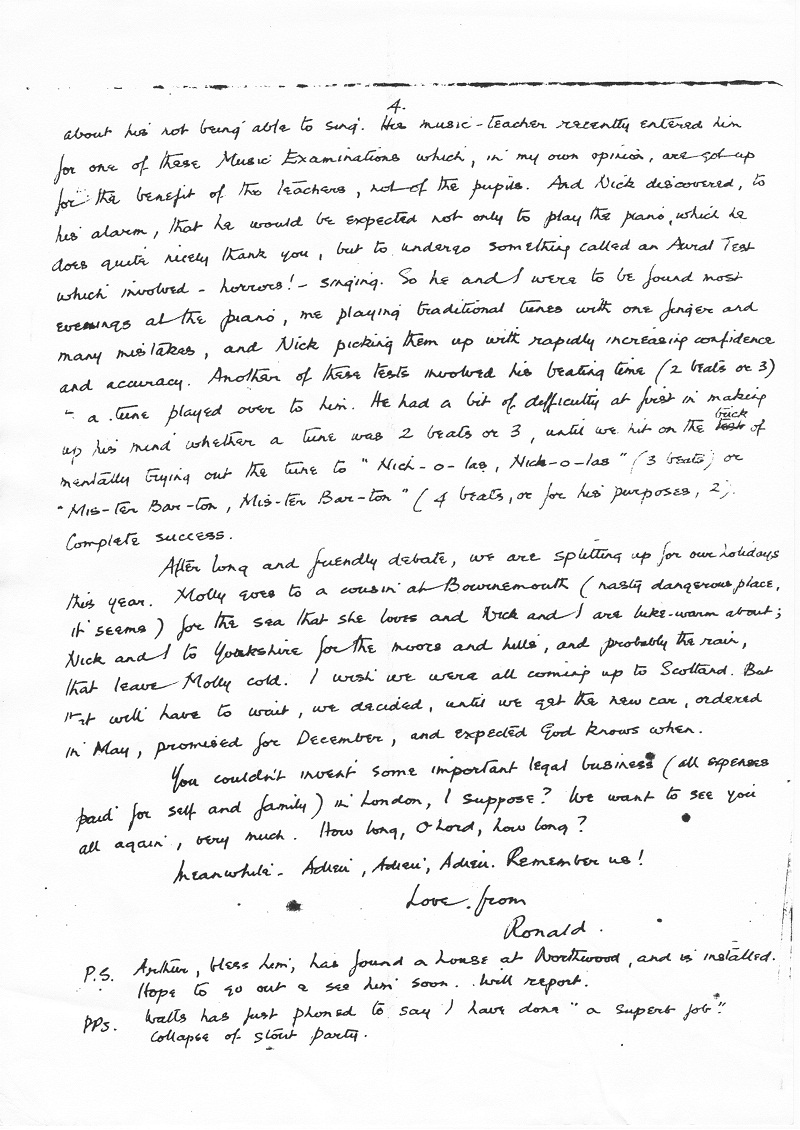 4.
about his not being able to sing. His music-teacher recently entered him
for one of these Music Examinations which, in my own opinion, are got up
for the benefit of the teachers, not of the pupils. And Nick discovered, to
his alarm, that he would be expected not only to play the piano, which he
does quite nicely thank you, but to undergo something called an Aural Test
which involved - horrors! - singing. So he and I were to be found most
evenings at the piano, me playing traditional tunes with one finger and
many mistakes, and Nick picking them up with rapidly increasing confidence
and accuracy. Another of these tests involved his beating time (2 beats or 3)
a tune played over to him. He had a bit of difficulty at first in making
up his mind whether a tune was 2 beats or 3, until we hit on the trick of
mentally trying out the tune to "Nich-o-las, Nich-o-las" (3 beats) or
"Mis-ter Bar-ton, Mis-ter Bar-ton" (4 beats, or for his purposes, 2).
Complete success.
After long and friendly debate, we are splitting up for our holidays
this year. Molly goes to a cousin at Bournemouth (nasty dangerous place,
it seems) for the sea that she loves and Nick and I are luke-warm about;
Nick and I to Yorkshire for the moors and hills, and probably the rain,
that leave Molly cold. I wish we were all coming up to Scotland. But
it will have to wait, we decided, until we get the new car, ordered
in May, promised for December, and expected God knows when.
You couldn't invent some important legal business (all expenses
paid for self and family) in London, I suppose? We want to see you
all again, very much. How long, O Lord, how long?
Meanwhile - Adieu, Adieu, Adieu. Remember us!
Love from
Ronald.
P.S. Arthur, bless him, has found a house at Northwood, and is installed.
Hope to go out & see him soon. Will report.
PPS. Watts has just phoned to say I have done "a superb job".
Collapse of stout party.